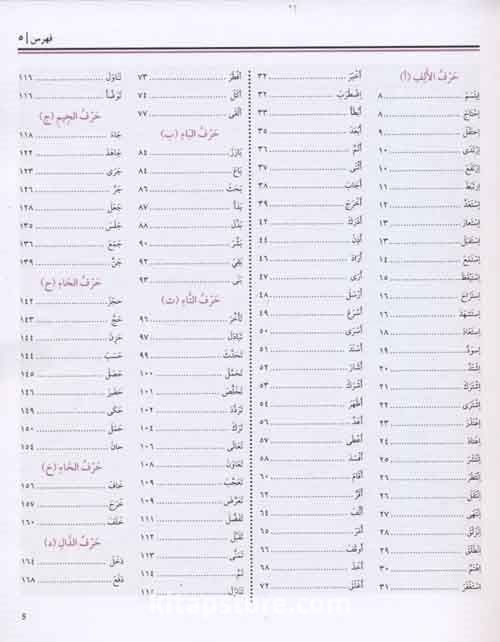 فهرس | ٥
حَرْفُ الأَلِفِ (أ)
اِبْتَسَمَ ........ ٨
اِحْتَاجَ ........ ٨
اِحْتَفَلَ ........ ٩
اِرْتَدَى ........ ١٠
اِرْتَفَعَ ........ ١٠
اِرْتَبَطَ ........ ١١
اِسْتَعَدَّ ........ ١٢
اِسْتَعَارَ ........ ١٣
اِسْتَقْبَلَ ........ ١٣
اِسْتَمَعَ ........ ١٤
اِسْتَيْقَظَ ........ ١٥
اِسْتَرَاحَ ........ ١٦
اِسْتَشْهَدَ ........ ١٦
اِسْتَعَادَ ........ ١٨
اِسْوَدَّ ........ ١٩
اِشْتَدَّ ........ ٢٠
اِشْتَرَكَ ........ ٢١
اِشْتَرَى ........ ٢٢
اِعْتَذَرَ ........ ٢٣
اِعْتَادَ ........ ٢٤
اِنْتَشَرَ ........ ٢٥
اِنْتَظَرَ ........ ٢٦
اِنْتَهَى ........ ٢٧
اِنْزَلَقَ ........ ٢٨
اِنْطَلَقَ ........ ٢٩
اِهْتَمَّ ........ ٣٠
اِسْتَغْفَرَ ........ ٣١
........ ٣٢
اِضْطَرَبَ ........ ٣٢
أَبْطَأَ ........ ٣٣
أَبْعَدَ ........ ٣٥
أَتَمَّ ........ ٣٦
أَثْنَى ........ ٣٧
أَجَابَ ........ ٣٨
أَخْرَجَ ........ ٣٩
أَدْرَكَ ........ ٤٢
أَذِنَ ........ ٤٤
أَرَادَ ........ ٤٦
أَرَى ........ ٤٧
أَرْسَلَ ........ ٤٨
أَسْرَعَ ........ ٤٩
أَسْرَى ........ ٥٠
أَسْنَدَ ........ ٥١
أَشَارَ ........ ٥٢
أَشْرَكَ ........ ٥٣
أَظْهَرَ ........ ٥٤
أَعَدَّ ........ ٥٦
أَعْطَى ........ ٥٧
أَفْسَدَ ........ ٥٨
أَقَامَ ........ ٦٠
أَقَرَّ ........ ٦٢
أَلَّفَ ........ ٦٤
أَمَرَ ........ ٦٥
أَوْقَفَ ........ ٦٦
أَخَذَ ........ ٦٨
........ ٧٢
........ ٧٣
أَكَلَ ........ ٧٤
أَلْقَى ........ ٧٧
حَرْفُ البَاءِ (ب)
بَارَزَ ........ ٨٤
بَاعَ ........ ٨٤
بَحَثَ ........ ٨٦
بَدَأَ ........ ٨٧
بَدَّلَ ........ ٨٨
بَشَّرَ ........ ٩٠
بَقِيَ ........ ٩٢
بَنَى ........ ٩٣
حَرْفُ التَّاءِ (ت)
تَأَخَّرَ ........ ٩٦
تَبَادَلَ ........ ٩٧
تَحَدَّثَ ........ ٩٩
تَحَمَّلَ ........ ١٠٠
تَخَلَّصَ ........ ١٠١
تَرَدَّدَ ........ ١٠٢
تَرَكَ ........ ١٠٤
تَعَالَى ........ ١٠٦
تَعَاوَنَ ........ ١٠٨
تَعَجَّبَ ........ ١٠٩
تَعَرَّضَ ........ ١٠٩
تَفَضَّلَ ........ ١١١
تَقَبَّلَ ........ ١١٢
تَمَنَّى ........ ١١٣
تَمَّ ........ ١١٤
تَنَازَلَ ........
تَنَاوَلَ ........ ١١٦
تَوَضَّأَ ........ ١١٦
حَرْفُ الجِيمِ (ج)
جَاءَ ........ ١١٨
جَاهَدَ ........ ١٢٢
جَرَى ........ ١٢٣
جَرَّ ........ ١٢٦
جَعَلَ ........ ١٢٨
جَلَسَ ........ ١٣٥
جَمَعَ ........ ١٣٦
جَنَّ ........ ١٣٩
حَرْفُ الحَاءِ (ح)
حَجَزَ ........ ١٤٢
حَجَّ ........ ١٤٣
حَزِنَ ........ ١٤٤
حَسَبَ ........ ١٤٤
حَصَلَ ........ ١٤٥
حَضَرَ ........ ١٤٦
حَكَى ........ ١٤٩
حَمَلَ ........ ١٥٠
حَانَ ........ ١٥٤
حَرْفُ الخَاءِ (خ)
خَافَ ........ ١٥٦
خَرَجَ ........ ١٥٧
خَلَفَ ........ ١٦٠
حَرْفُ الدَّالِ (د)
دَخَلَ ........ ١٦٤
دَفَعَ ........ ١٦٨
5
kitapstore.com